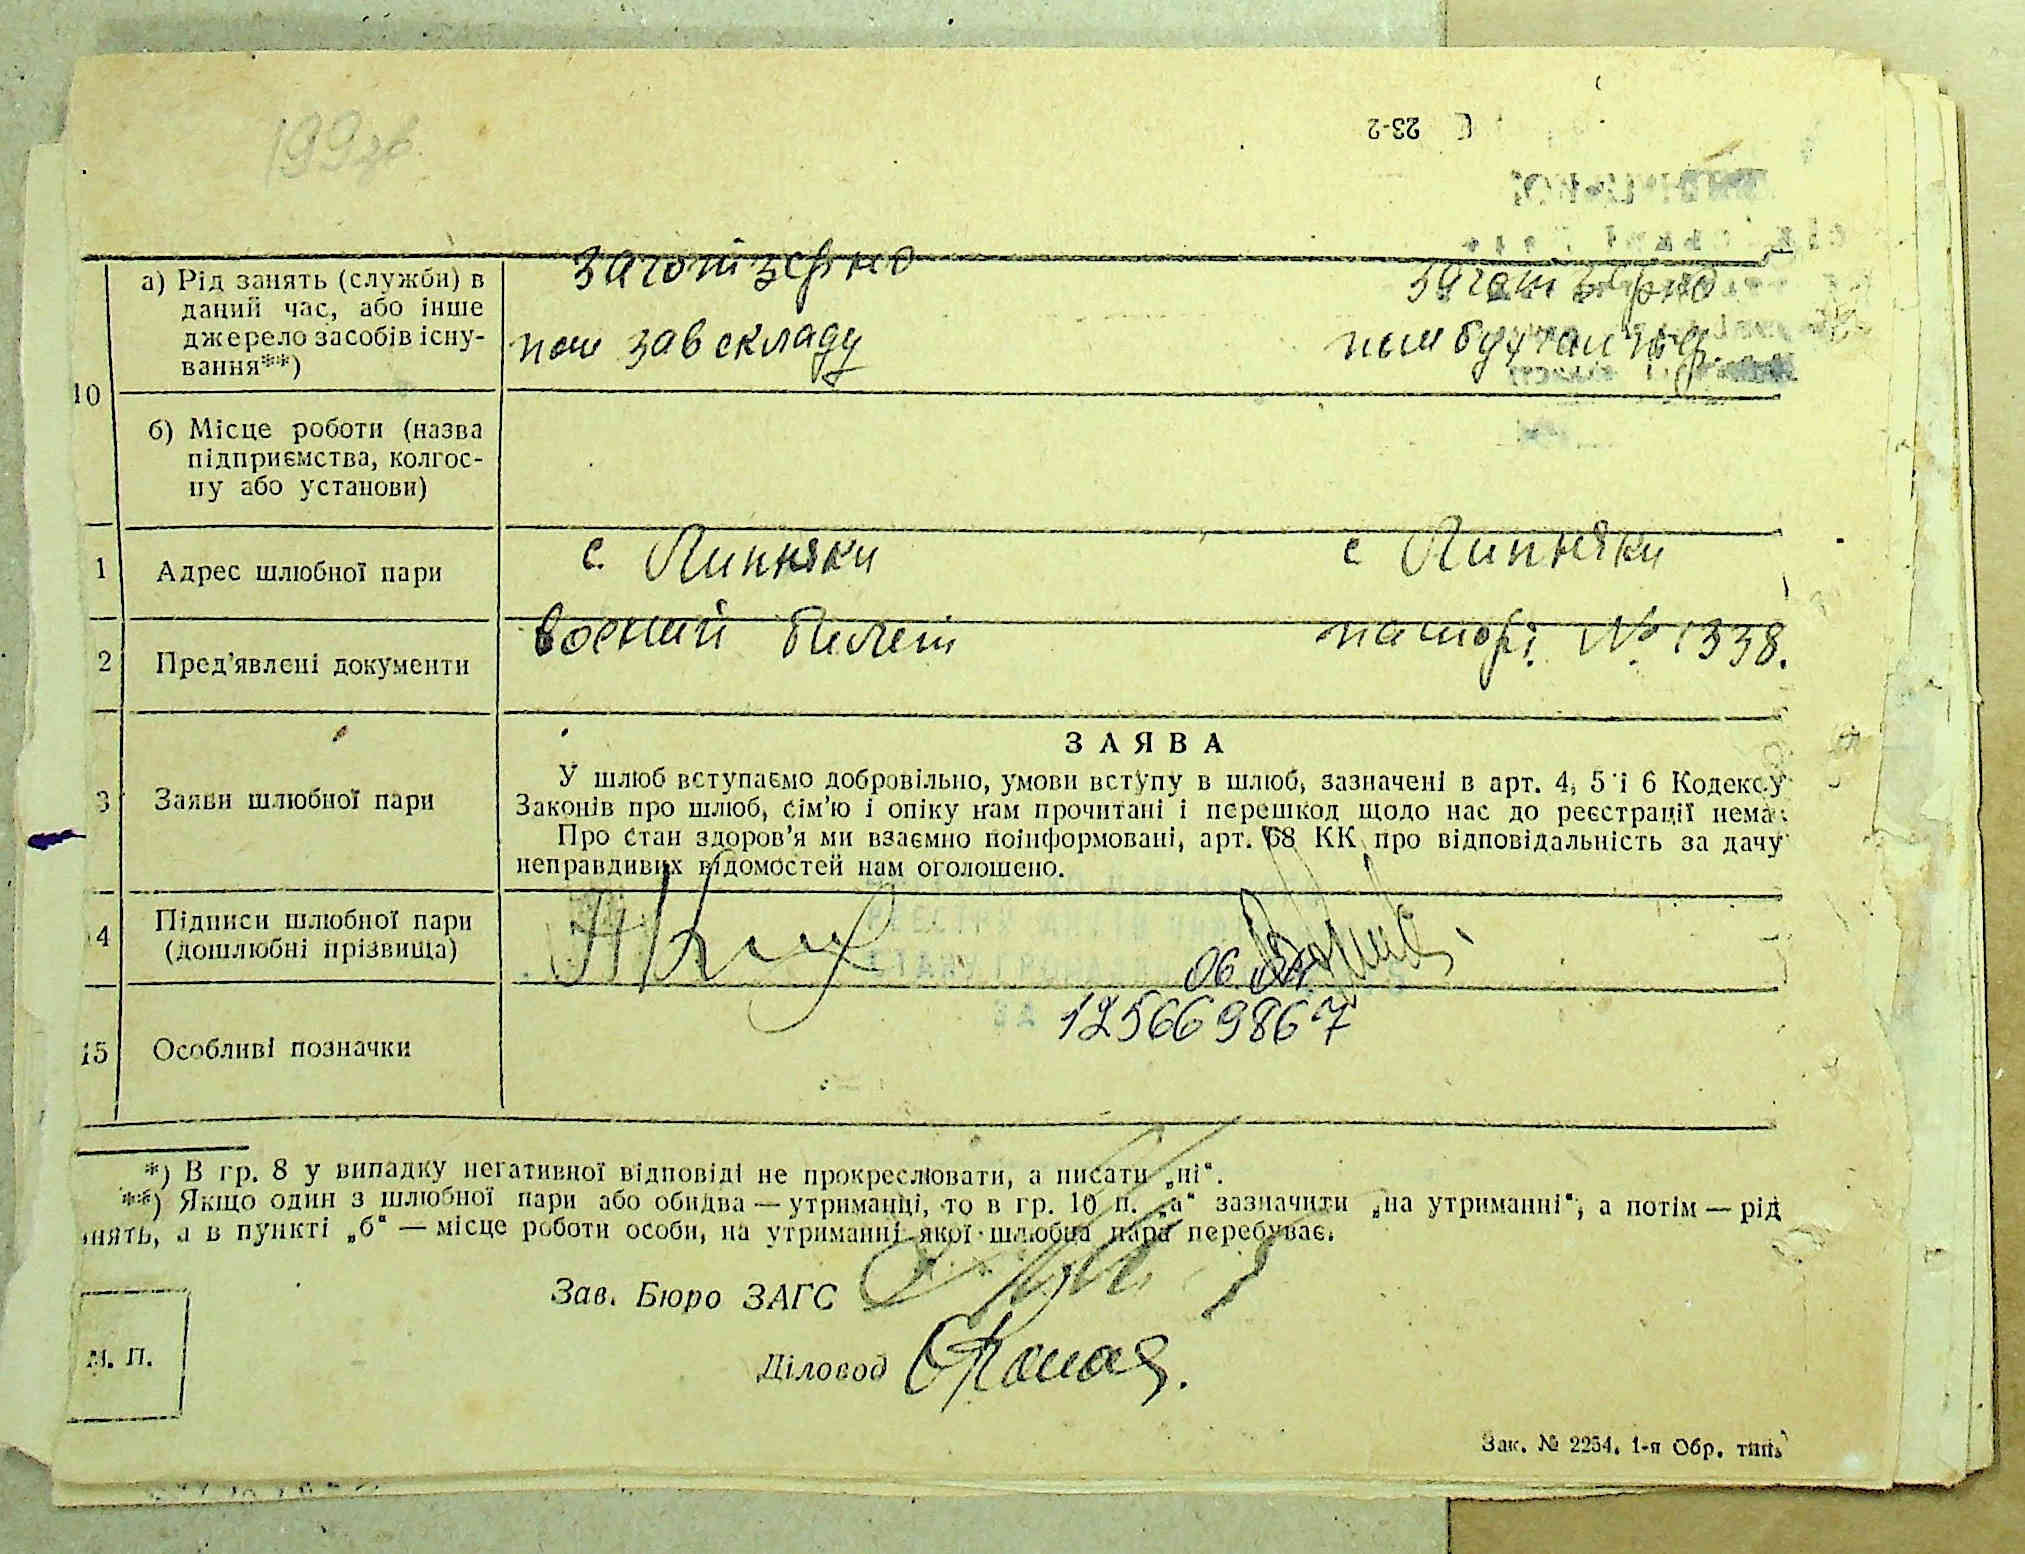 199зв.
23-2
10
а) Рід занять (служби) в
даний час, або інше
джерело засобів існу-
вання**)
Заготзерно
пом зав складу
Заготзерно
пом бухгалтера
б) Місце роботи (назва
підприємства, колгос-
пу або установи)
1 Адрес шлюбної пари
с. Липняки
с Липняки
2 Пред’явлені документи
воєний билет
паспорт № 1338.
3 Заяви шлюбної пари
ЗАЯВА
У шлюб вступаємо добровільно, умови вступу в шлюб, зазначені в арт. 4, 5 і 6 Кодексу
Законів про шлюб, сім’ю і опіку нам прочитані і перешкод щодо нас до реєстрації нема.
Про стан здоров’я ми взаємно поінформовані, арт. 68 КК про відповідальність за дачу
неправдивих відомостей нам оголошено.
4 Підписи шлюбної пари
(дошлюбні прізвища)
15 Особливі позначки
125669867
*) В гр. 8 у випадку негативної відповіді не прокреслювати, а писати „ні“.
**) Якщо один з шлюбної пари або обидва — утриманці, то в гр. 10 п. „а“ зазначити „на утриманні“, а потім — рід
нять, а в пункті „б“ — місце роботи особи, на утриманні якої шлюбна пара перебуває.
Зав. Бюро ЗАГС
М. П.
Діловод
Зак. № 2254. 1-я Обр. тип.